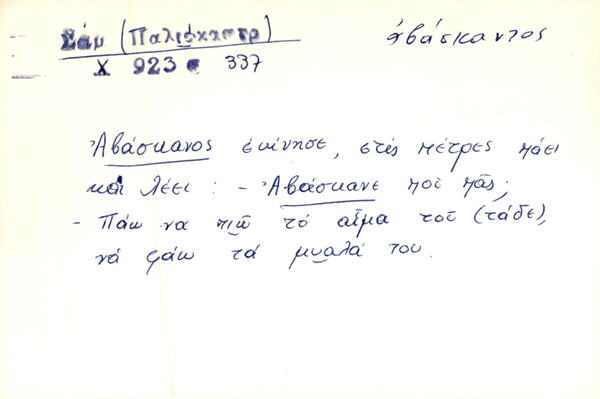 Σάμ (Παλιόκαστρ)
Χ 923 337
ἀβάσκαντος
Ἀβάσκανος ἐκίνησε, στὶς πέτρες πάει
καὶ λέει : - Ἀβάσκανε ποῦ πᾶς;
- Πάω νὰ πιῶ τὸ αἷμα τοῦ (τάδε),
νὰ φάω τὰ μυαλά του.